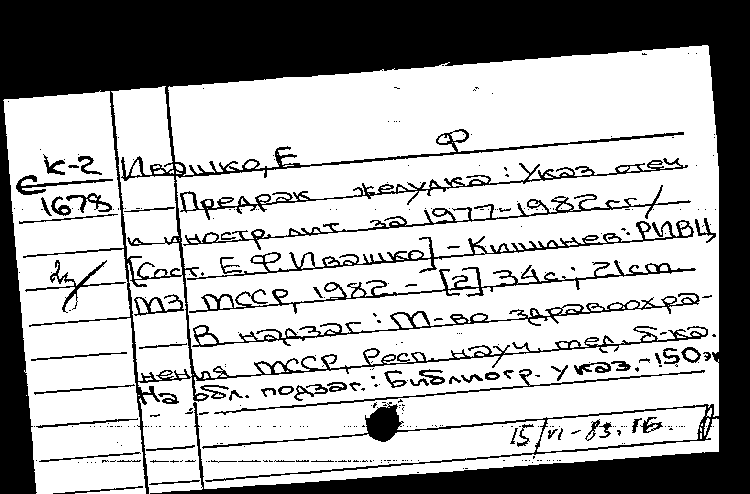 К-2
С 1678
Ивашко, Е Ф
Предрак желудка : Указ отеч.
и иностр. лит. за 1977-1982 гг /
[Сост. Е.Ф. Ивашко]. - Кишинев : РИВЦ
МЗ МССР, 1982. - [2], 34 с. ; 21 см.
В надзаг : М-во здравоохра-
нения МССР, Респ. науч. мед. б-ка.
На обл. подзаг. : Библиогр. указ. - 150 э
15/VI-83. ГБ.